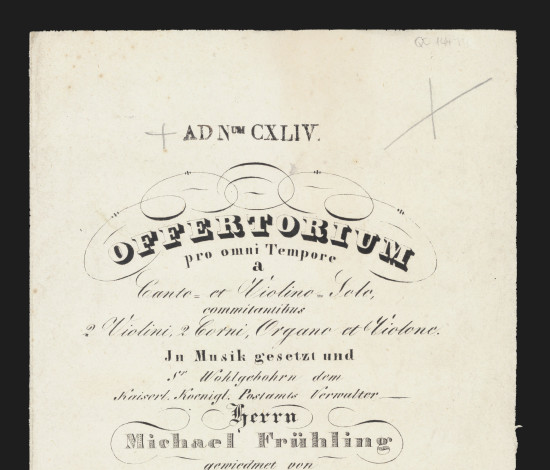 AD Nᵁᴹ CXLIV.
OFFERTORIUM
pro omni Tempore
a
Canto= et Violino=Solo,
commitantibus
2 Violini, 2 Corni, Organo et Violone.
In Musik gesetzt und
Sr Wohlgebohrn dem
Kaiserl. Koenigl. Postamts Verwalter
Herrn
Michael Frühling
gewiedmet von